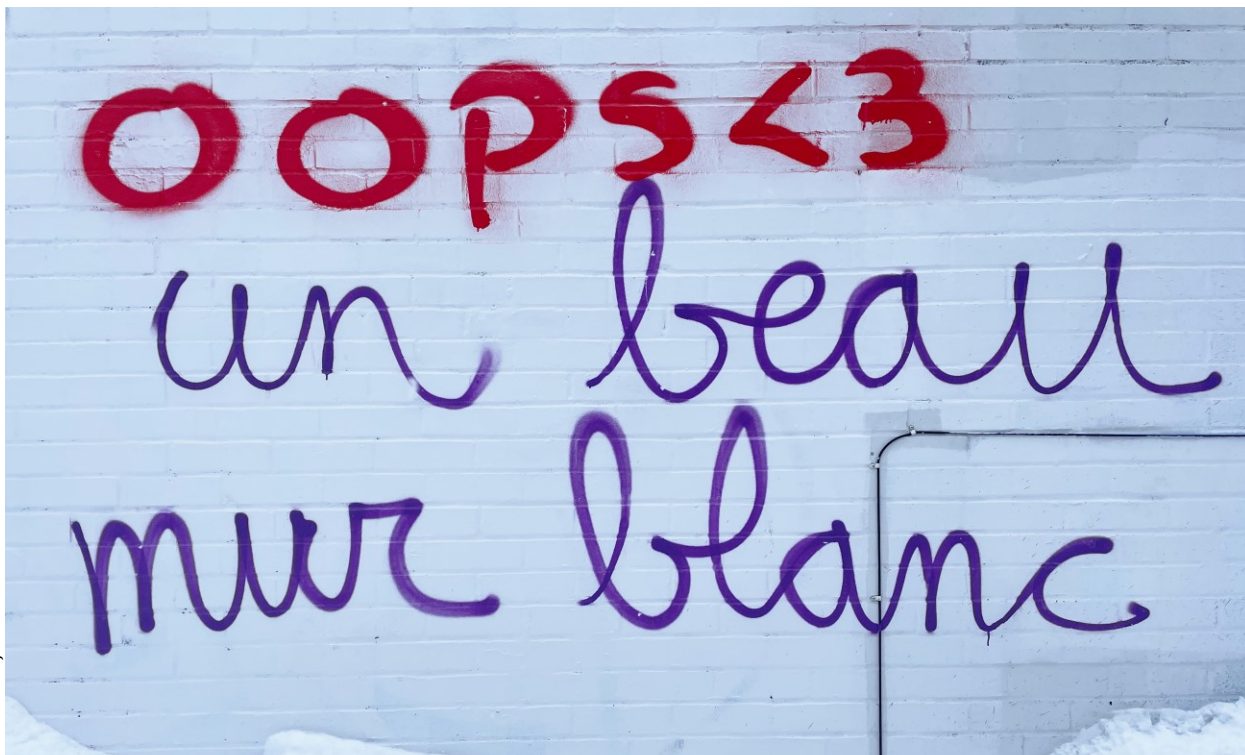 oops<3
un beau
mur blanc